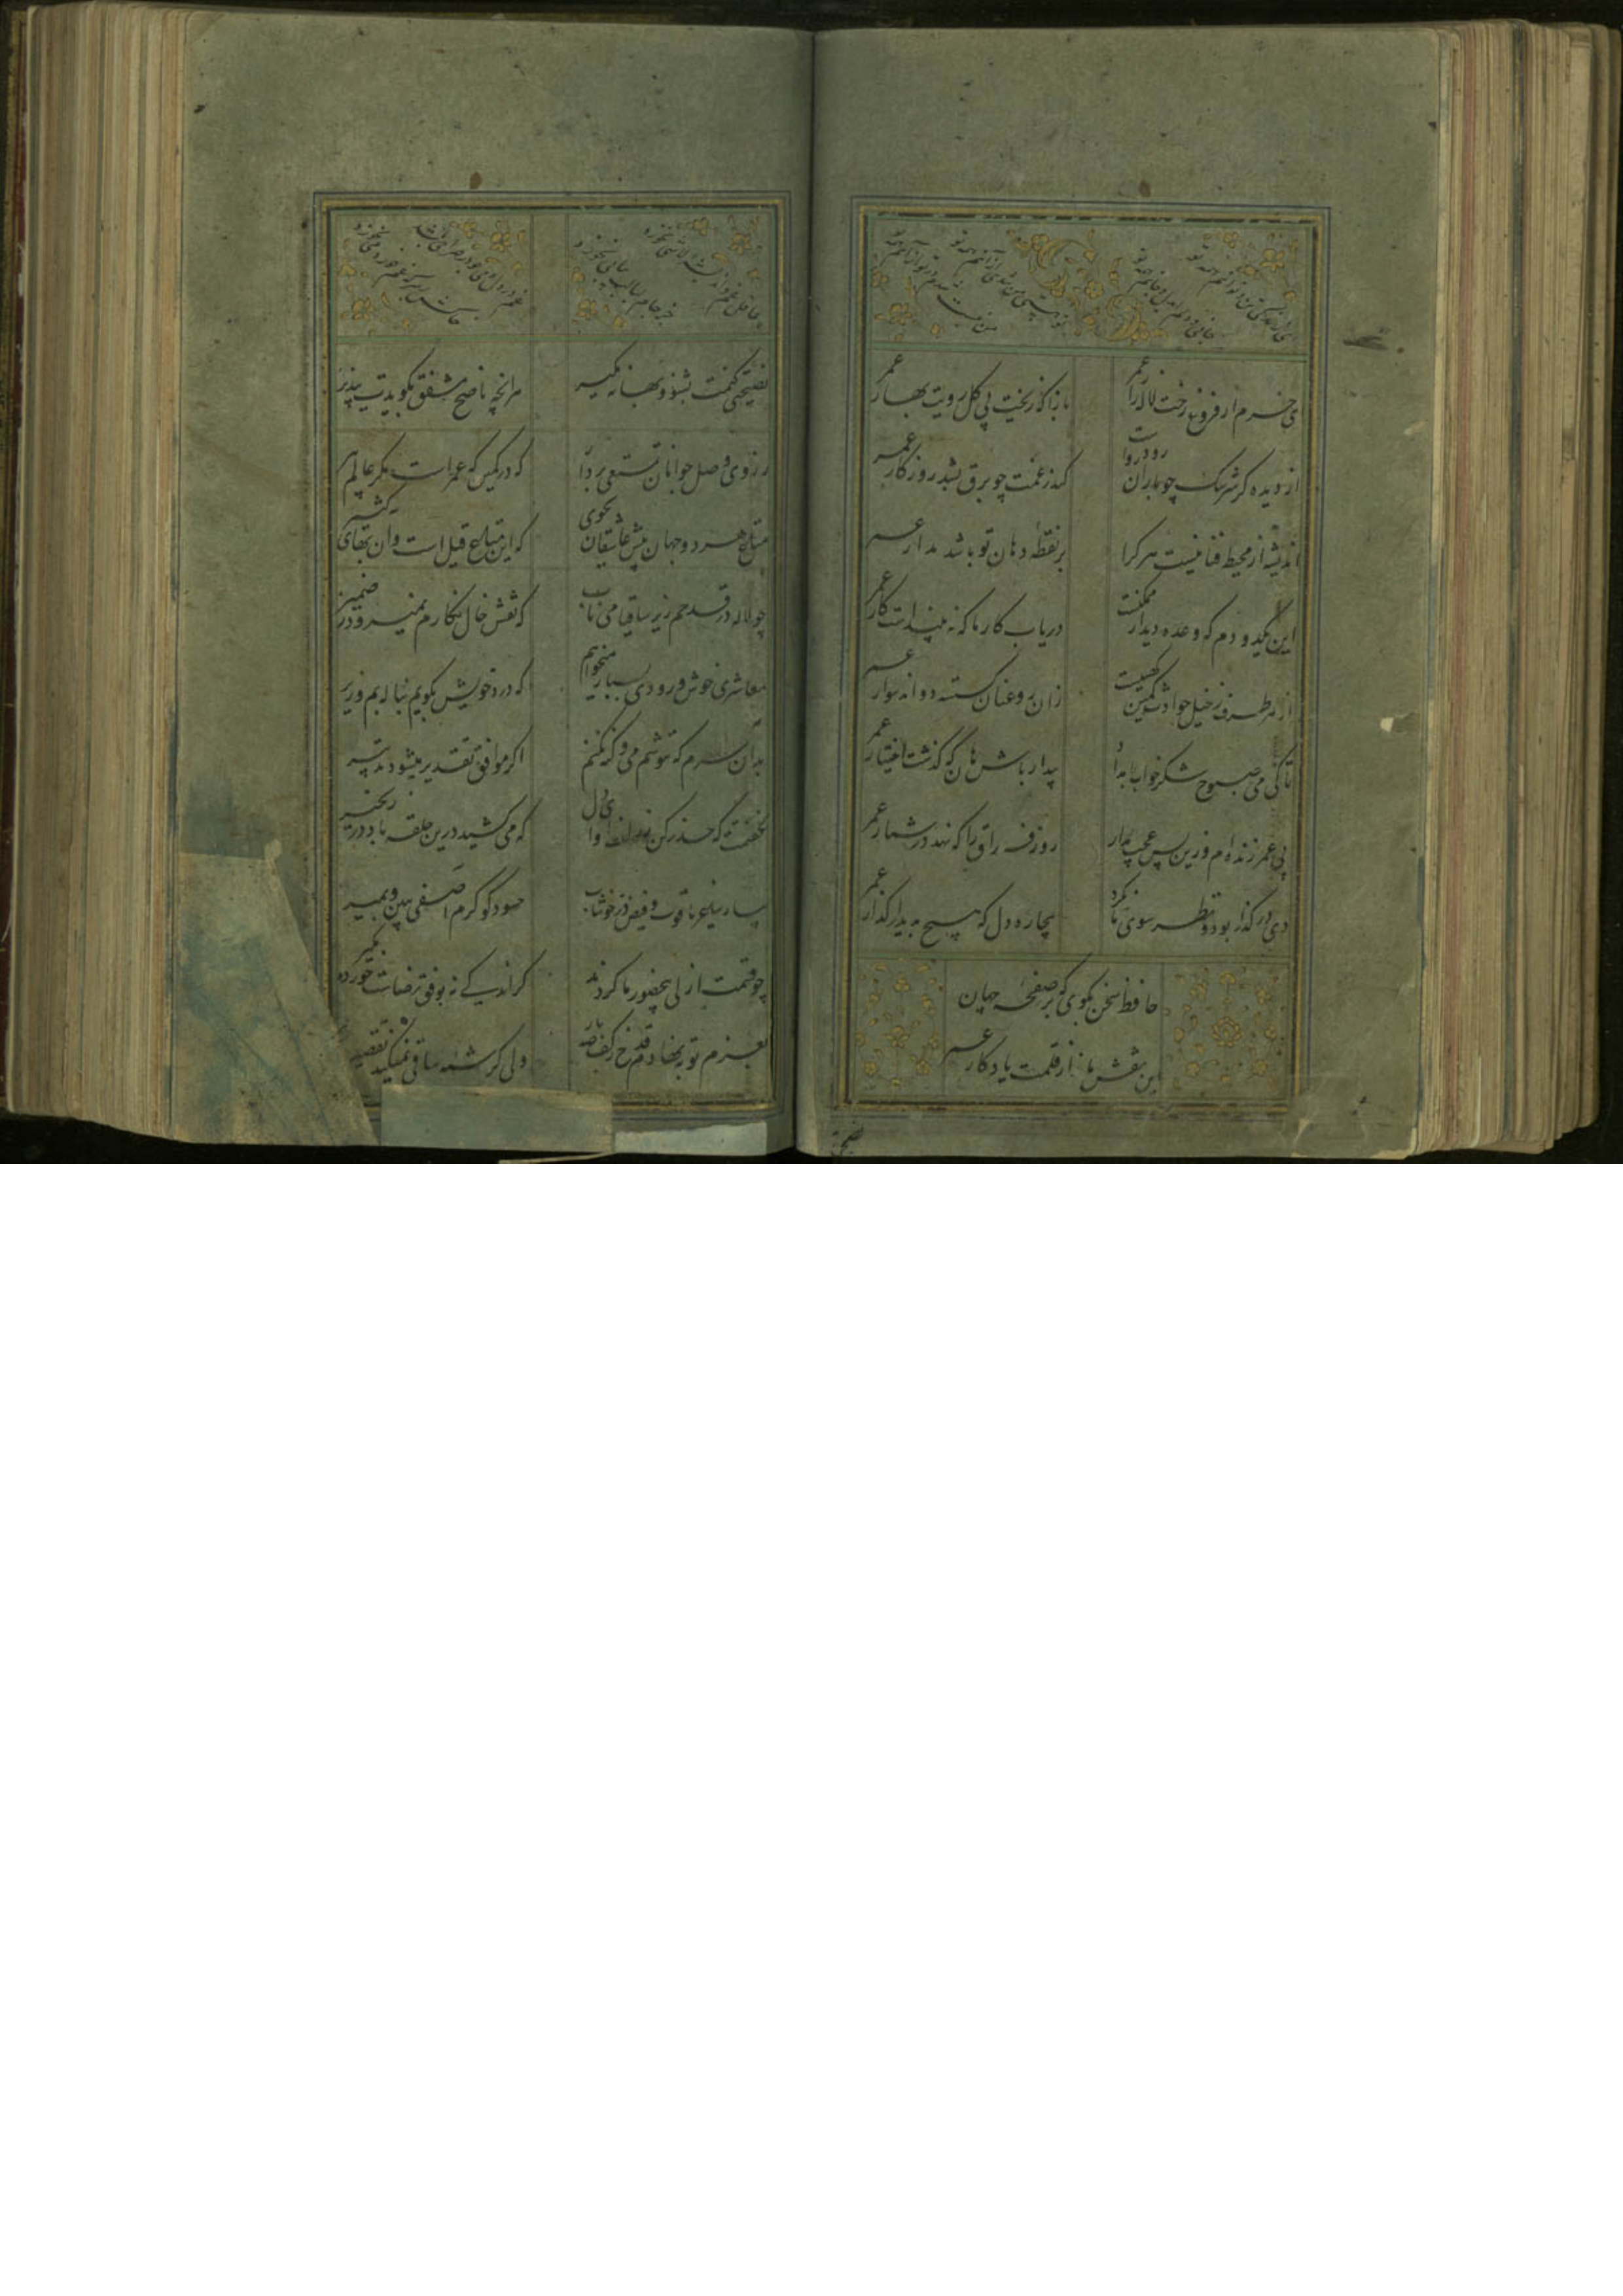 ای زندگی تن و توانم همه تو
جانی و دلی ای دل و جانم همه تو
تو هستی من شدی از آنی همه من
من نیست شدم در تو از آنم همه تو
ای خرم از فروغ رخت لاله زار عمر
بازآ که ریخت بی گل رویت بهار عمر
از دیده گر سرشک چو باران رود رواست
کاندر غمت چو برق بشد روزگار عمر
اندیشه از محیط فنا نیست هر کرا
بر نقطه دهان تو باشد مدار عمر
این یکدو دم که وعده دیدار ممکنست
دریاب کار ما که نه پیداست کار عمر
از هر طرف ز خیل حوادث کمین کهیست
زان رو عنان کسسته دواند سوار عمر
تا کی می صبوح و شکر خواب بامداد
بیدار باش هان که گذشت اختیار عمر
بی عمر زنده ام و زین بس عجب مدار
روز فراق را که نهد در شمار عمر
دی در گذار بود و نظر سوی ما نکرد
بیچاره دل که هیچ ندید از گذار عمر
حافظ سخن بگوی که بر صفحه جهان
این نقش ماند از قلمت یادگار عمر
نصیحتی
غم در دل
نصیحتی کنمت بشنو و بهانه مگیر
هر آنچه ناصح مشفق بگویدت بپذیر
ز وصل روی جوانان تمتعی بردار
که در کمین که عمر است مکر عالم پیر
متاع هر دو جهان پیش عاشقان بجوی
که این متاع قلیل است و آن بهای کثیر
چو لاله در قدحم ریز ساقیا می ناب
که نقش خال نگارم نمیرود ز ضمیر
معاشری خوش و رودی بساز میخواهم
که درد خویش بگویم بناله بم و زیر
بدان سرم که ننوشم می و گنه نکنم
اگر موافق تقدیر میشود تدبیر
نگفتمت که حذر کن ز زلف او ای دل
که می کشید درین حلقه باد در زنجیر
بیار ساغر یاقوت و فیض در خوشاب
حسود گو کرم آصفی ببین و بمیر
چو قسمت ازلی بی حضور ما کردند
گر اندکی نه بوفق رضاست خورده مگیر
بعزم توبه نهادم قدح ز کف صد بار
ولی کرشمه ساقی نمیکند تقصیر